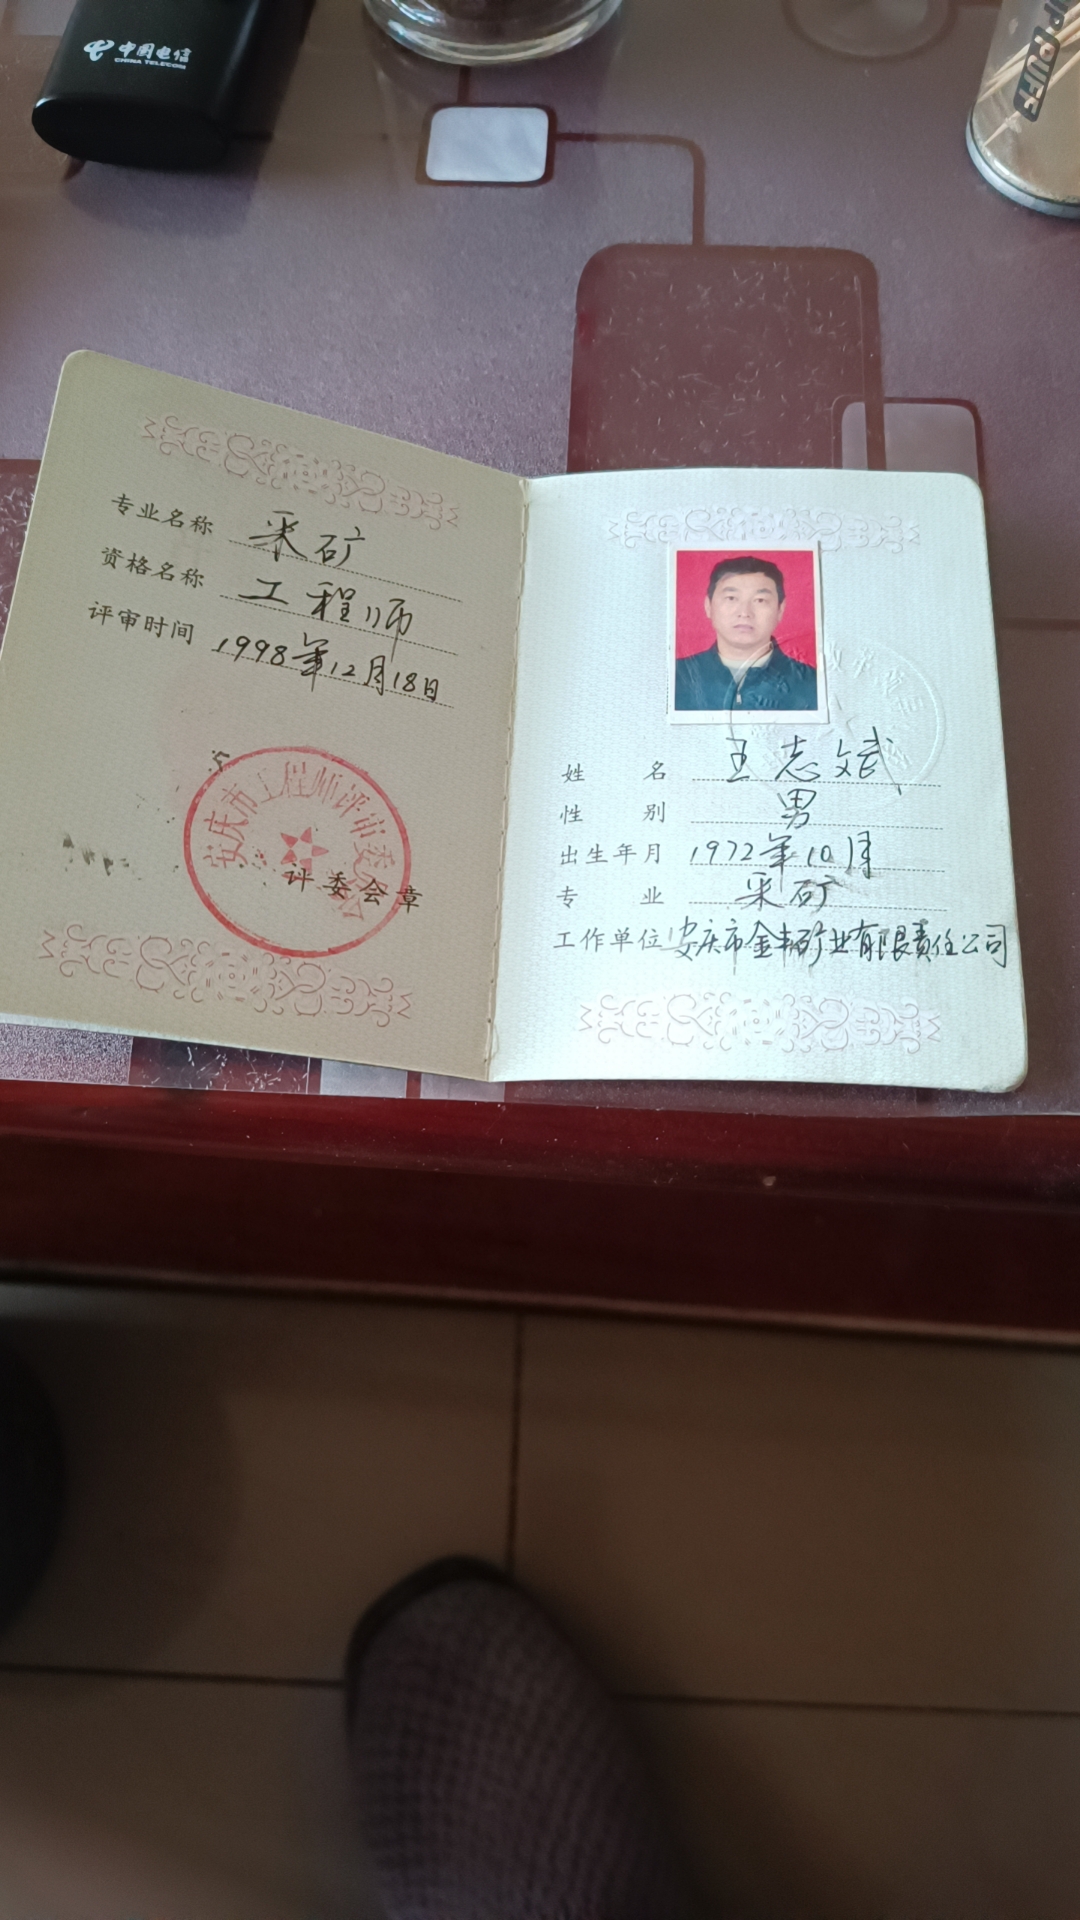 中国电信
CHINA TELECOM
UP PUFF
专业名称 采矿
资格名称 工程师
评审时间 1998年12月18日
安庆市工程师评审委员会
评委会章
姓名 王志斌
性别 男
出生年月 1972年10月
专业 采矿
工作单位 安庆市金丰矿业有限责任公司